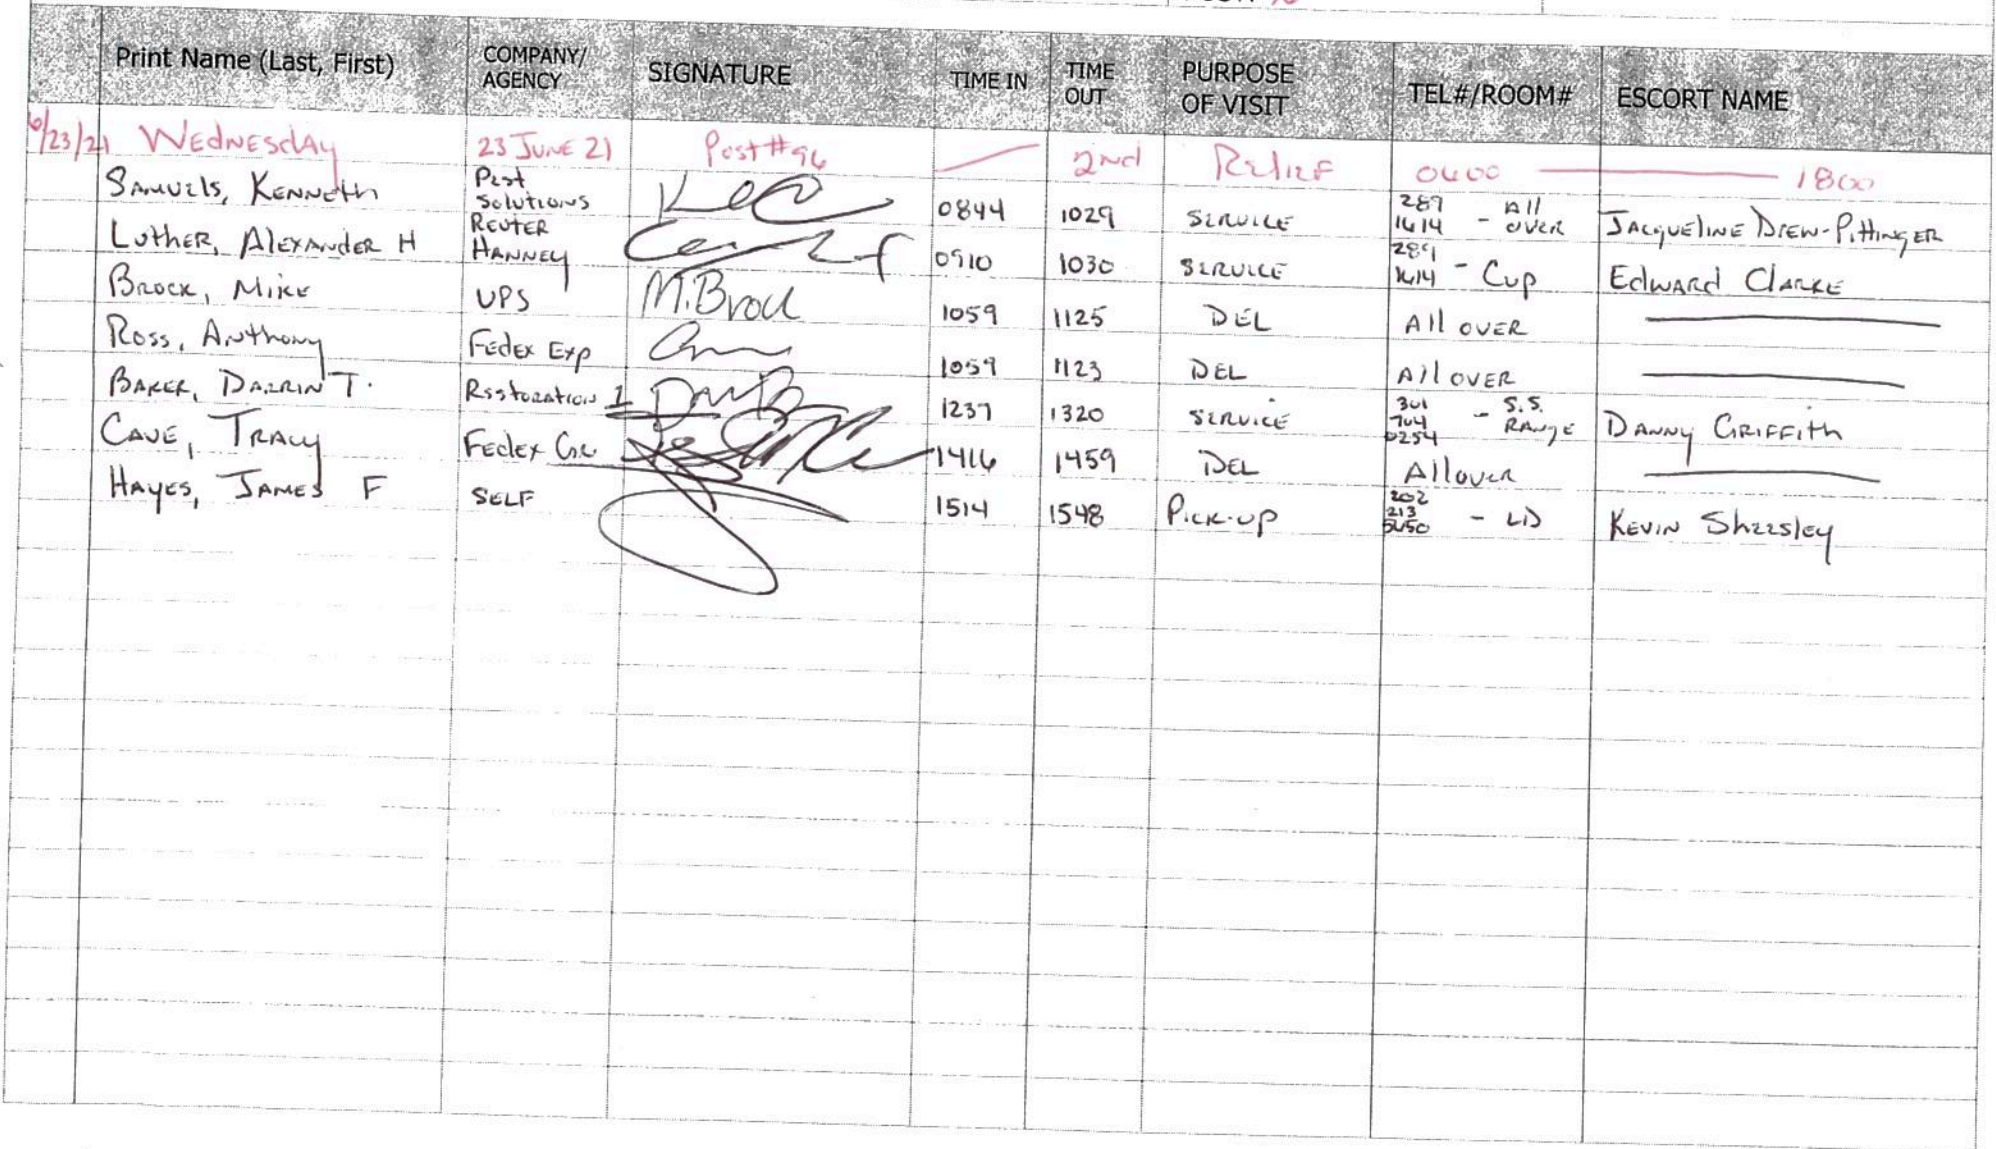 Print Name (Last, First) COMPANY/ AGENCY SIGNATURE TIME IN TIME OUT PURPOSE OF VISIT TEL#/ROOM# ESCORT NAME
6/23/21 WEDNESDAY 23 JUNE 21 Post #96 2nd RELIEF 0600 1800
SAMUELS, KENNETH PEST SOLUTIONS 0844 1029 SERVICE 289 1614 - All OVER JACQUELINE DREW-PITTINGER
LUTHER, ALEXANDER H REUTER HANNEY 0910 1030 SERVICE 289 1614 - CUP EDWARD CLARKE
BROCK, MIKE UPS M.Brock 1059 1125 DEL All OVER
ROSS, ANTHONY FEDEX EXP 1059 1123 DEL All OVER
BAKER, DARRIN T. RESTORATION 1 1237 1320 SERVICE 301 704 0254 - S.S. RANGE DANNY GRIFFITH
CAVE, TRACY FEDEX 1416 1459 DEL All OVER
HAYES, JAMES F SELF 1514 1548 PICK-UP 202 213 5650 - LD KEVIN SHEESLEY